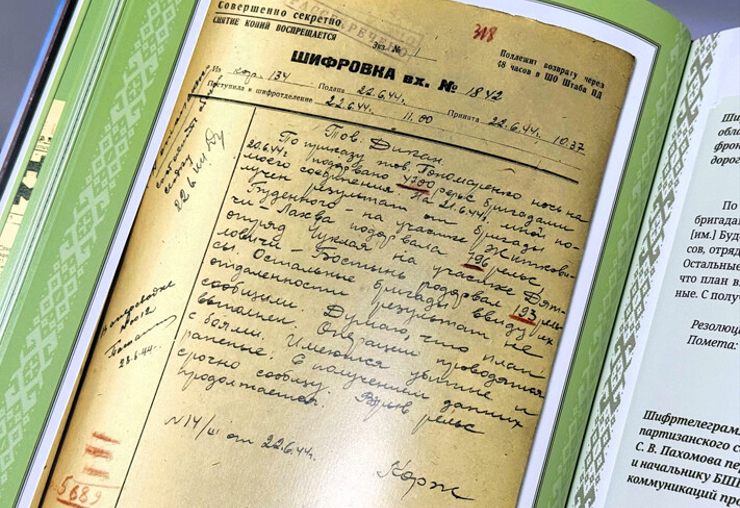 Совершенно секретно
РАССЕКРЕЧЕНО
СНЯТИЕ КОПИЙ ВОСПРЕЩАЕТСЯ
Экз. № 1
318
Подлежит возврату через
48 часов в ШО Штаба ПД
ШИФРОВКА вх. № 1842
Из кор. 134 Подана 22.6.44г.
Поступила в шифротделение 22.6.44г. 11.00 Принята 22.6.44г. 10.37
Тов. Дикан.
По приказу тов. Пономаренко ночь на
20.6.44г. подорвано 4700 рельс бригадами
моего соединения. На 21.6.44г. мной по-
лучен результат от бригады
Буденного - на участке Житкови-
чи - Лахва подорвала 196 рельс,
отряд Чуклая на участке Дят-
ловичи - Бостынь подорвал 193 рель-
сы. Остальные бригады ввиду их
отдаленности результат не
сообщили. Думаю, что план
выполнен. Операции проводятся
с боями. Имеются убитые и
раненые. С получением данных
срочно сообщу. Взрыв рельс
продолжается.
N 14/ш от 22.6.44г.
Корж
22.6.44г.
23.6.44г.
5689
Ши
обла
фрон
дорог
По
бригадам
[им.] Буд
сов, отряд
Остальные
что план в
ные. С полу
Резолюци
Помета:
Шифртелеграм
партизанского со
С. В. Пахомова пер
и начальнику БШП
коммуникаций про